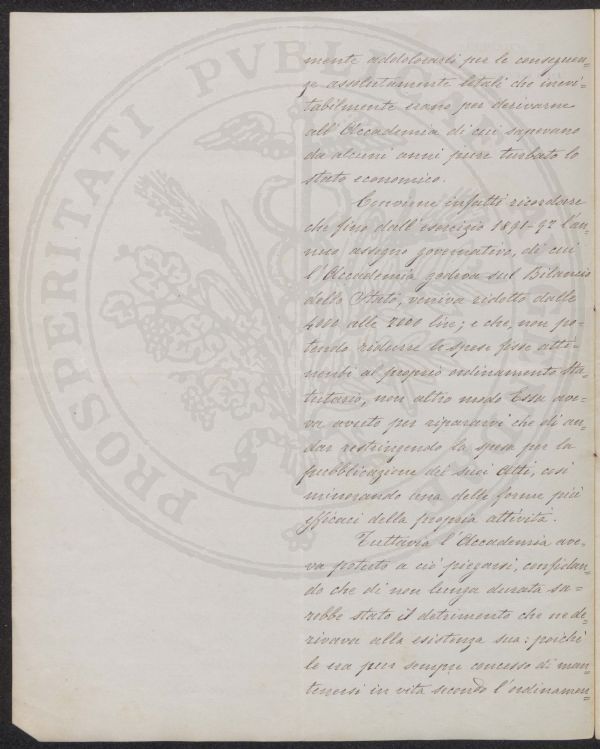 PROSPERITATI PVBLICAE
mente addolorarsi per le conseguen=
ze assolutamente letali che inevi=
tabilmente erano per derivarne
all'Accademia di cui sapevano
da alcuni anni pure turbato lo
stato economico.
Conviene infatti ricordare
che fino dall'esercizio 1891-92 l'an=
nuo assegno governativo, di cui
l'Accademia godeva sul Bilancio
dello Stato, veniva ridotto dalle
4000 alle 2000 lire; e che, non po=
tendo ridurre le spese fisse atti=
nenti al proprio ordinamento Sta=
tutario, non altro modo Essa ave=
va avuto per ripararvi che di an=
dar restringendo la spesa per la
pubblicazione dei suoi Atti, così
minorando una delle forme più
efficaci della propria attività.
Tuttavia l'Accademia ave=
va potuto a ciò piegarsi, confidan=
do che di non lunga durata sa=
rebbe stato il detrimento che ne de=
rivava alla esistenza sua: poichè
le era pur sempre concesso di man=
tenersi in vita secondo l'ordinamen=